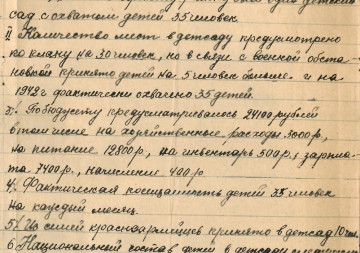 сад с охватом детей 35 человек
2) Количество мест в детсаду предусмотрено
по плану на 30 человек, но в связи с военной обста-
новкой принято детей на 5 человек больше. и на
1942 г фактически охвачено 35 детей.
3) По бюджету предусматривалось 24100 рублей
в том числе на хозяйственные расходы 3000 р,
на питание 12800 р, на инвентарь 500 р, зарпла-
та 7400 р, начисление 400 р
4) Фактическая посещаемость детей 35 человек
на каждый месяц.
5) Из семей красноармейцев принято в детсад 10 чел.
6 Национальный состав детей в детсаду